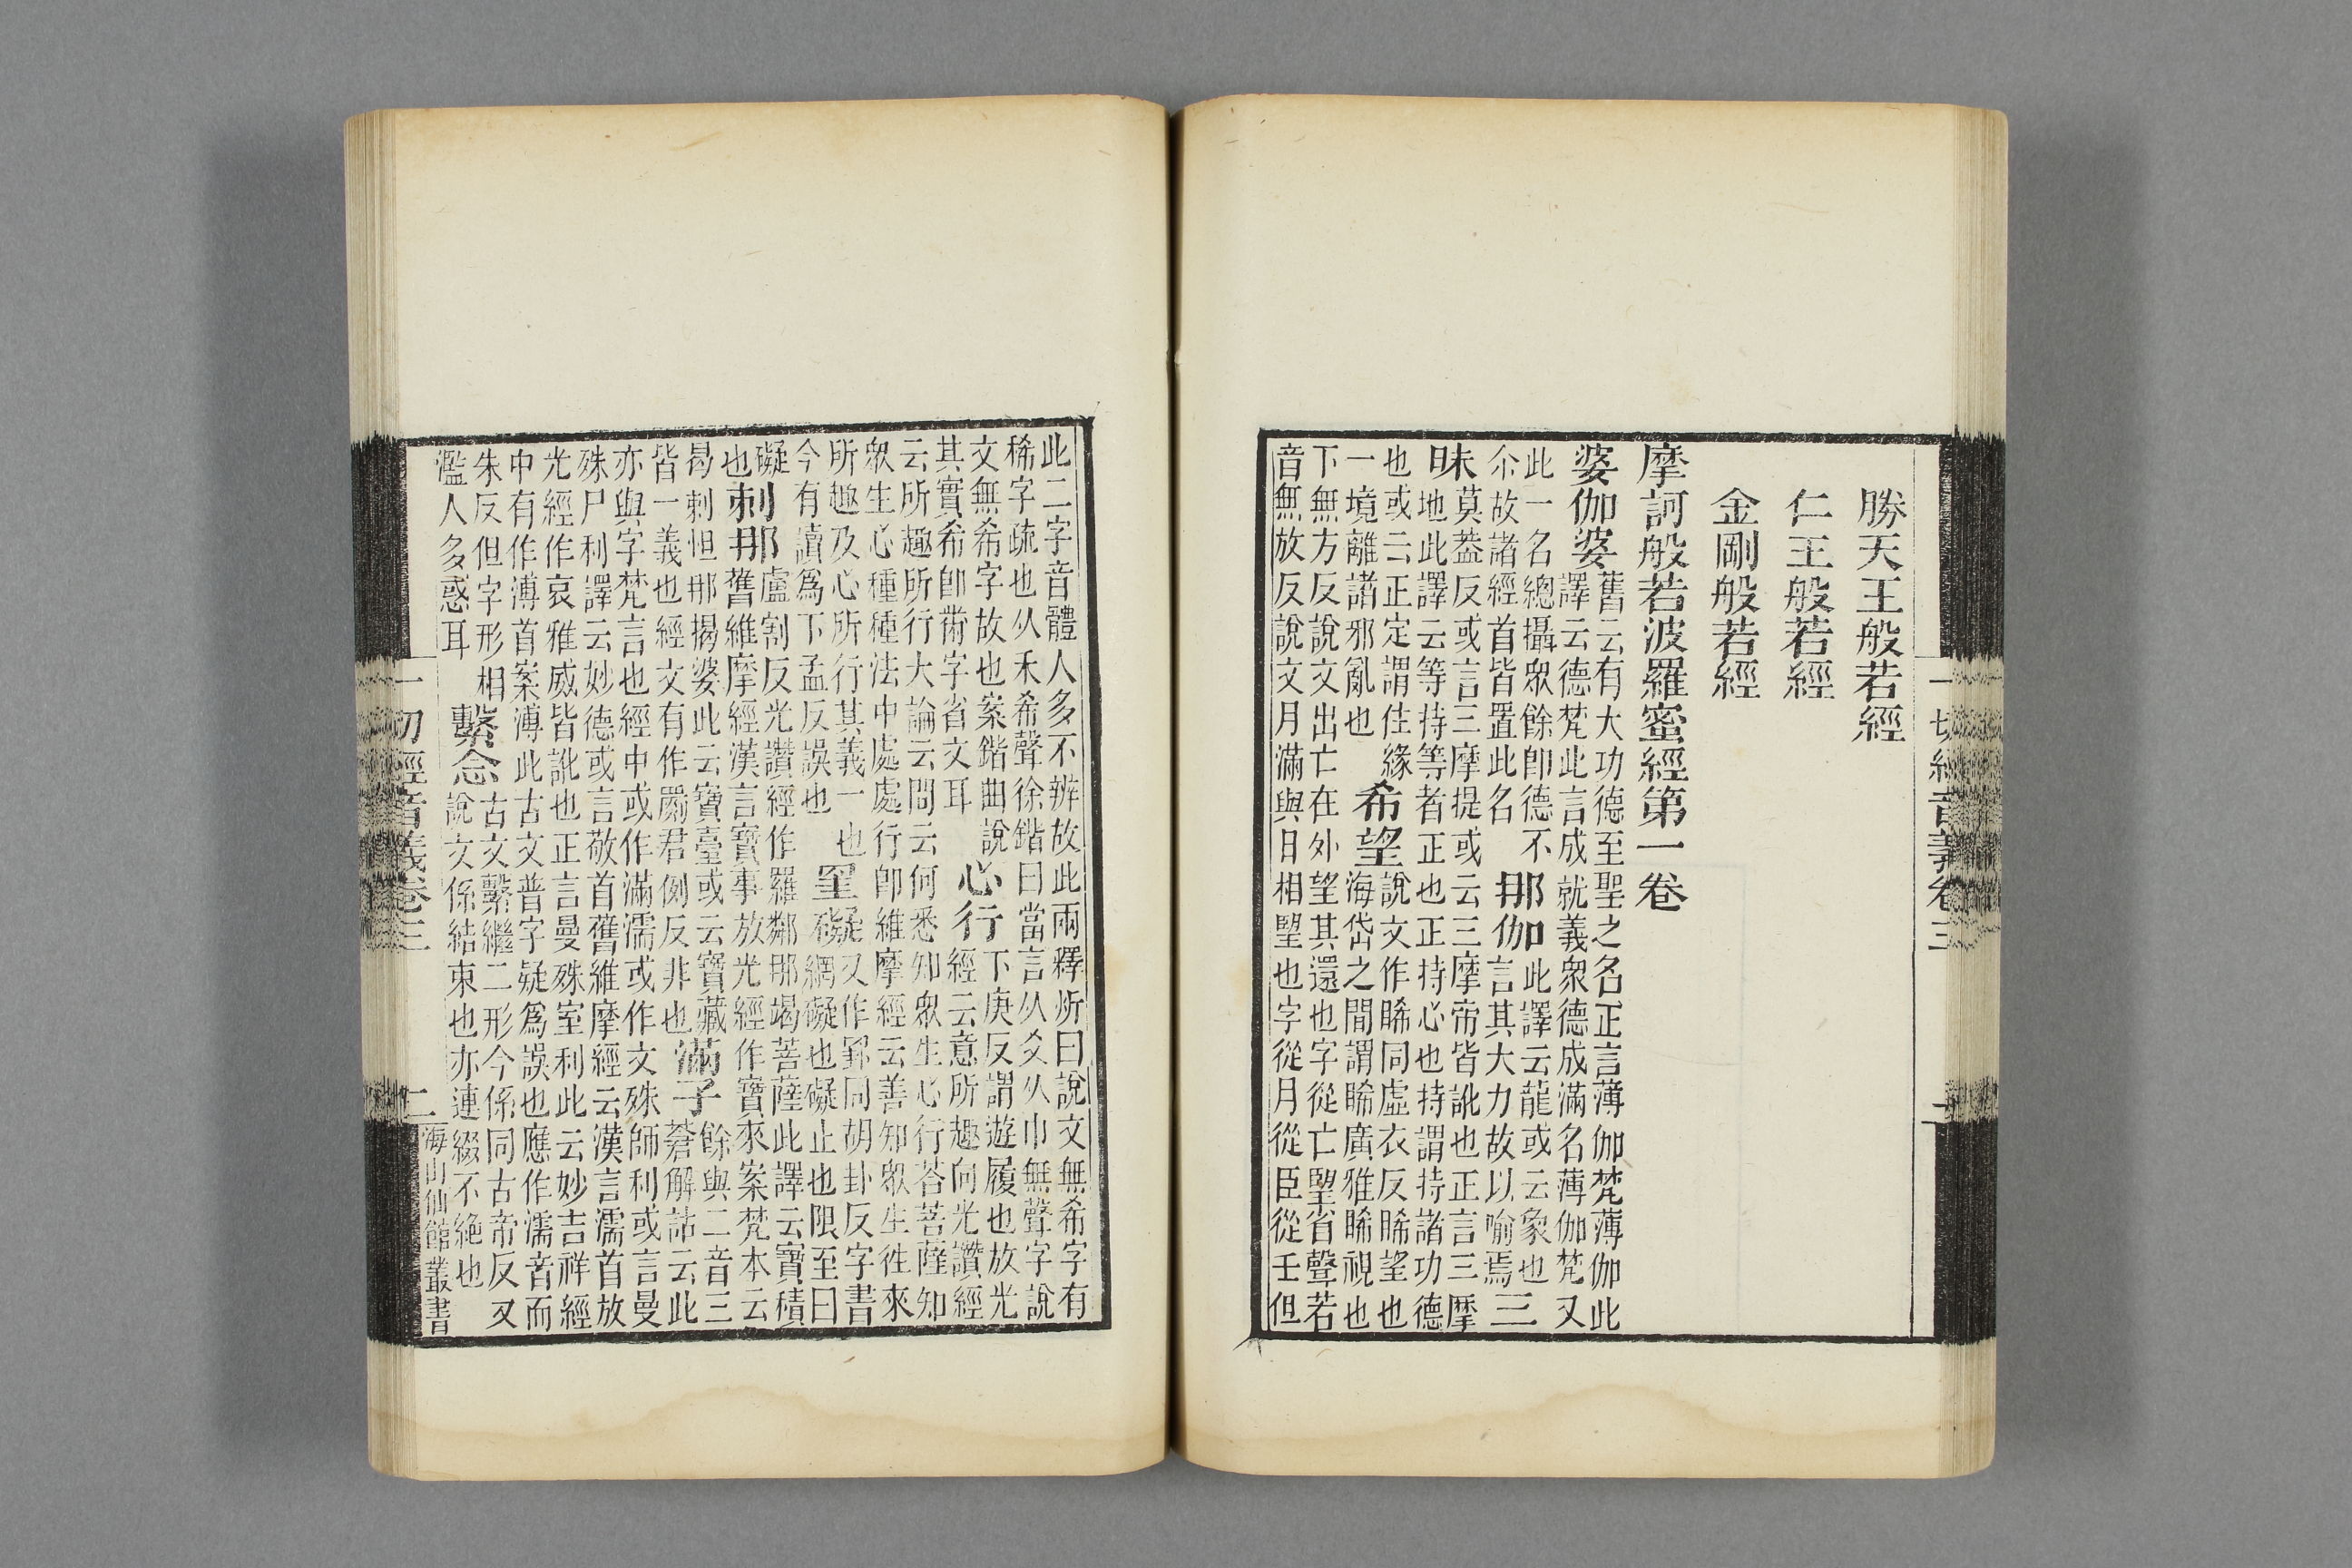 一切經音義卷三 一
勝天王般若經
仁王般若經
金剛般若經
摩訶般若波羅蜜經第一卷
婆伽婆
舊云有大功德至聖之名正言薄伽梵薄伽此
譯云德梵此言成就義衆德成滿名薄伽梵又
此一名總攝衆餘卽德不
尒故諸經首皆置此名
那伽
此譯云龍或云象也
言其大力故以喻焉
三
昧
莫葢反或言三摩提或云三摩帝皆訛也正言三摩
地此譯云等持等者正也正持心也持謂持諸功德
也或云正定謂住緣
一境離諸邪亂也
希望
說文作睎同虛衣反睎望也
海岱之間謂睎廣雅睎視也
下無方反說文出亡在外望其還也字從亡朢省聲若
音無放反說文月滿與日相朢也字從月從臣從壬但
此二字音體人多不辨故此兩釋炘曰說文無希字有
稀字疏也从禾希聲徐鍇曰當言从爻从巾無聲字說
文無希字故也案鍇曲說
其實希卽黹字省文耳
心行
下庚反謂遊履也放光
經云意所趣向光讚經
云所趣所行大論云問云何悉知衆生心行荅菩薩知
衆生心種種法中處處行卽維摩經云善知衆生徃來
所趣及心所行其義一也
今有讀爲下孟反誤也
罣礙
又作罫同胡卦反字書
網礙也礙止也限至曰
礙
也
刺那
盧割反光讚經作羅鄰那竭菩薩此譯云寶積
舊維摩經漢言寶事放光經作寶來案梵本云
曷剌怛那揭婆此云寶臺或云寶藏
皆一義也經文有作罽君例反非也
滿子
餘與二音三
蒼解詁云此
亦與字梵言也經中或作滿濡或作文殊師利或言曼
殊尸利譯云妙德或言敬首舊維摩經云漢言濡首放
光經作哀雅威皆訛也正言曼殊室利此云妙吉祥經
中有作溥首案溥此古文普字疑爲誤也應作濡音而
朱反但字形相
濫人多惑耳
繫念
古文繫繼二形今係同古帝反又
說文係結束也亦連綴不絶也
一切經音義卷三 二 海山仙館叢書